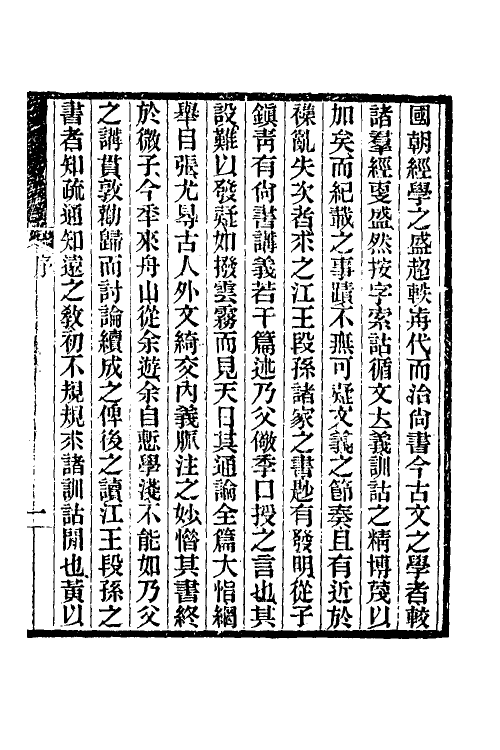 國朝經學之盛超軼歬代而治尙書今古文之學者較
諸羣經叓盛然按字索詁循文大義訓詁之精博蔑以
加矣而紀載之事蹟不無可疑文義之節奏且有近於
襍亂失次者求之江王段孫諸家之書尟有發明從子
鎮靑有尙書講義若干篇述乃父儆季口授之言也其
設難以發疑如撥雲霧而見天日其通論全篇大恉綱
舉目張尤㝵古人外文綺交內義脈注之妙惜其書終
於微子今秊來舟山從余遊余自慙學淺不能如乃父
之講貫敦勸歸而討論續成之俾後之讀江王段孫之
書者知疏通知遠之敎初不規規求諸訓詁閒也黃以
序
一